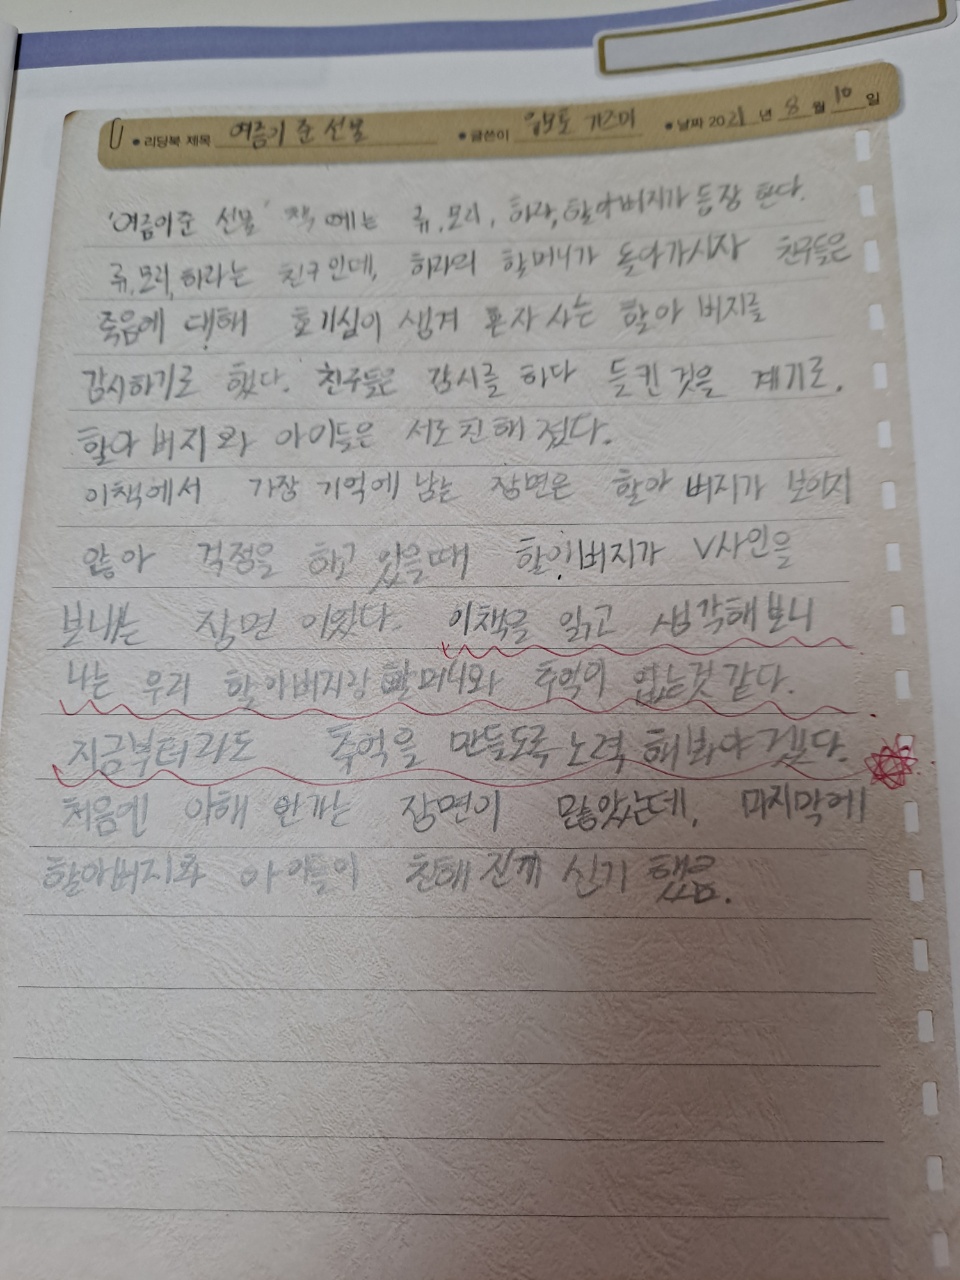 리딩북 제목 여름이 준 선물 글쓴이 유모토 가즈미 날짜 2021 년 8 월 10 일
'여름이준 선물' 책 에는 류, 모리, 하라, 할아버지가 등장 한다.
류, 모리, 하라는 친구인데, 하라의 할머니가 돌아가시자 친구들은
죽음에 대해 호기심이 생겨 혼자 사는 할아 버지를
감시하기로 했다. 친구들은 감시를 하다 들킨것을 계기로,
할아 버지와 아이들은 서로 친해 졌다.
이책에서 가장 기억에 남는 장면은 할아 버지가 보이지
않아 걱정을 하고 있을때 할아버지가 V사인을
보내는 장면 이었다. 이책을 읽고 생각해보니
나는 우리 할아버지랑 할머니와 추억이 없는것 같다.
지금부터라도 추억을 만들도록 노력 해봐야 겠다.
처음엔 이해 안가는 장면이 많았는데, 마지막에
할아버지와 아이들이 친해 진게 신기 했음.